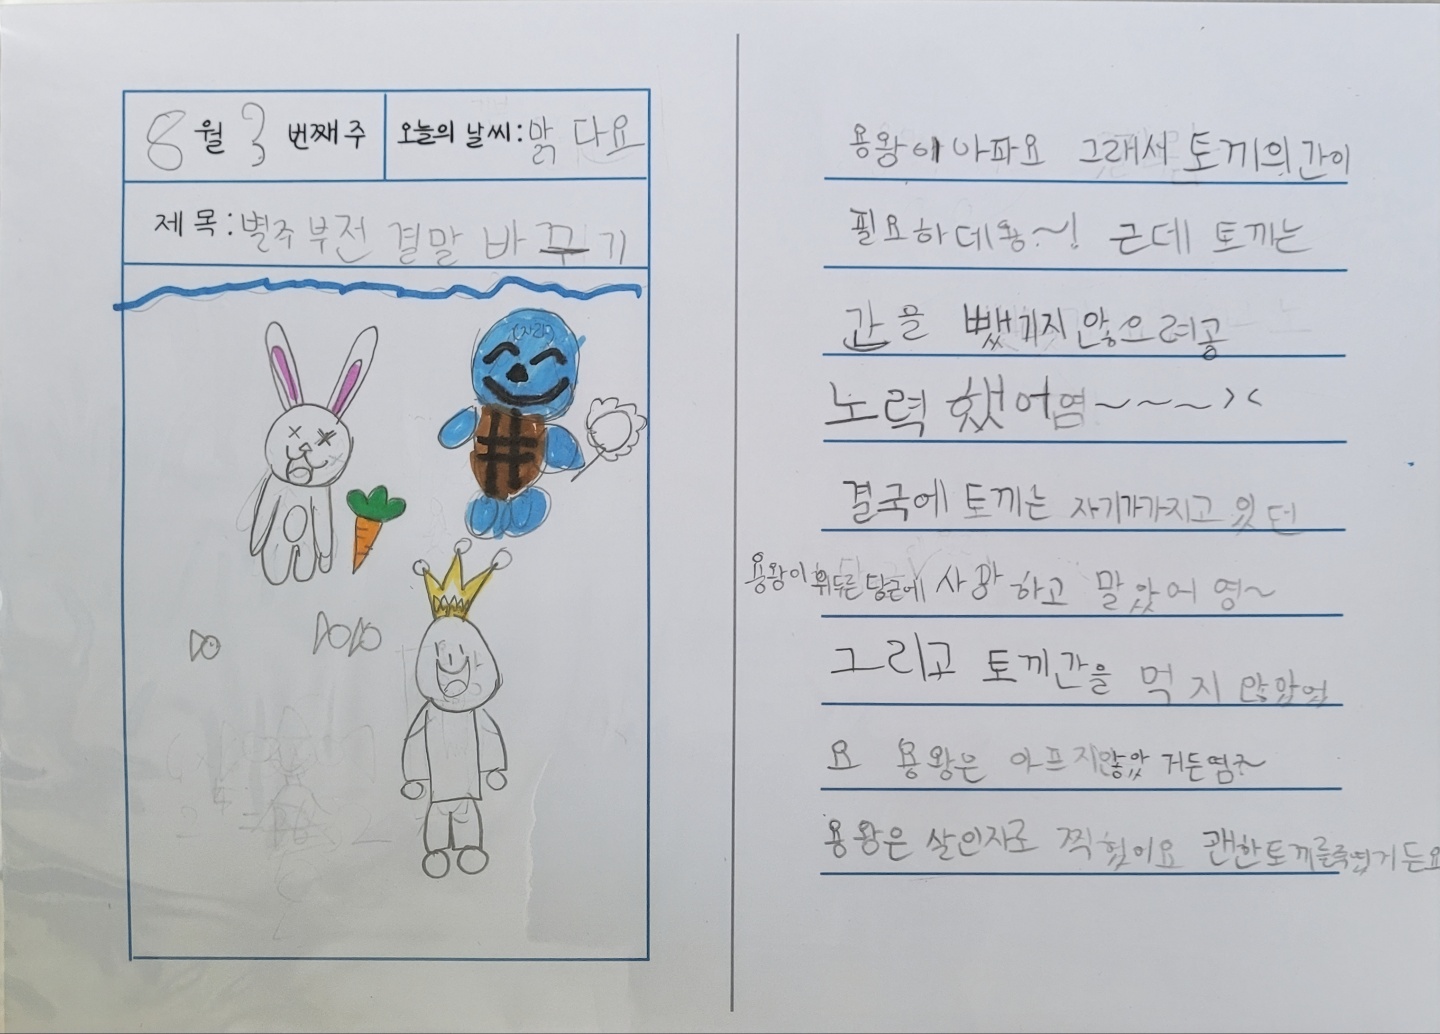 8월 3 번째 주 오늘의 날씨: 맑 다요
제 목: 별주부전 결말 바 꾸 기
(자라)
용왕이 아파요 그래서 토끼의 간이
필요하데용~! 근데 토끼는
간을 뺐기지 않으려공
노력 했어염~~~><
결국에 토끼는 자기가가지고 있던
용왕이 휘두른 당근에 사망하고 말았어영~
그리고 토끼간을 먹지 않았었
요 용왕은 아프지않았거든염~
용왕은 살인자로 찍혔어요 괜한토끼를죽였거든요